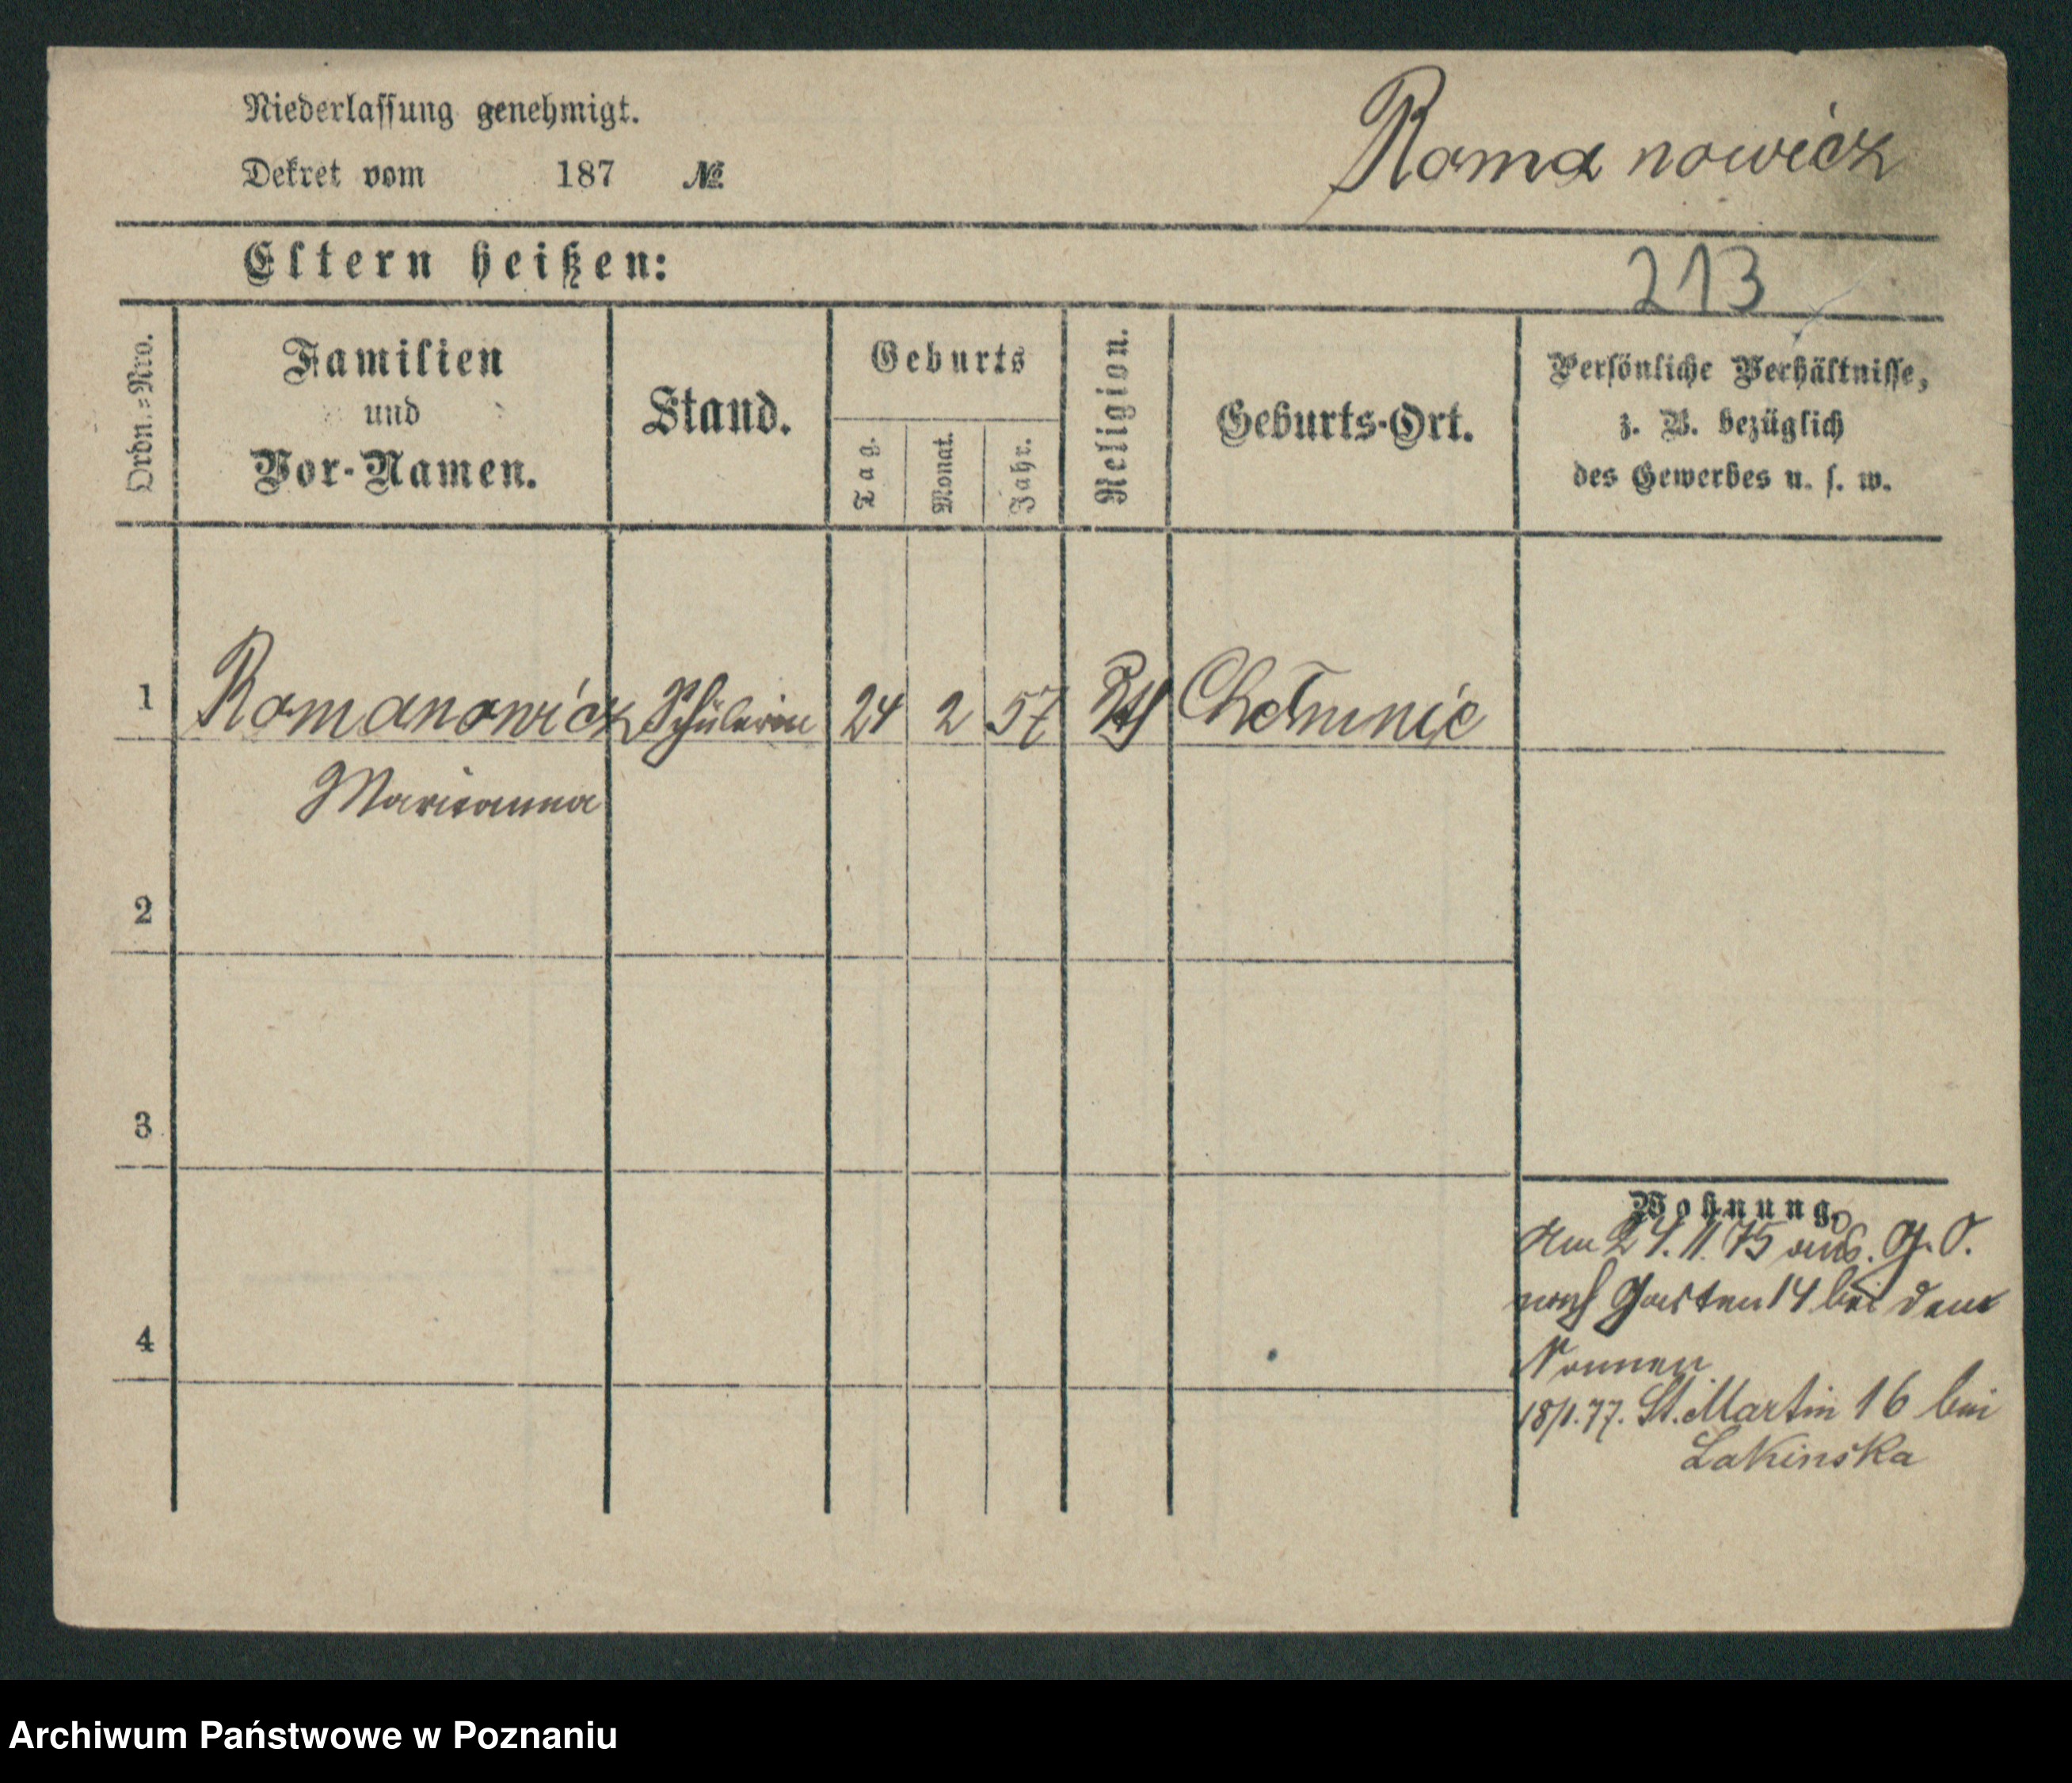 Niederlassung genehmigt.
Dekret vom 187 №
Romanowicz
Eltern heißen:
213
Ordn.=Nro.
Familien
und
Vor-Namen.
Stand.
Geburts
Tag.
Monat.
Jahr.
Religion.
Geburts-Ort.
Persönliche Verhältnisse,
z. B. bezüglich
des Gewerbes u. s. w.
1 Romanowicz Schülerin 24 2 57
Marianna
2
3
4
Wohnung.
Am 24. 11. 75
nach Garten 14 bei den
Nonnen
18/1.77. St. Martin 16 bei
Lakinska
Archiwum Państwowe w Poznaniu